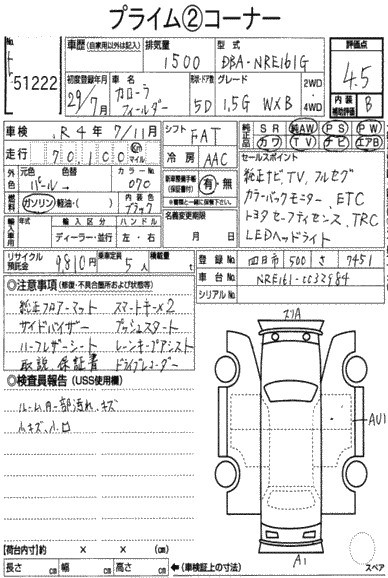 プライム②コーナー
No. 51222
車歴 (自家用以外は記入) 排気量 1500 型式 DBA-NRE161G 評価点 4.5
初度登録年月 29/7月 車名 カローラフィールダー 形状・ドア数 5D グレード 1.5G W×B 2WD・4WD 内装補助評価 B
車検 R4年 7/11月 シフト FAT 純正品 SR 純AW PS PW
走行 70,100 Km マイル 冷房 AAC カワ TV ナビ エアB
外色 元色 パール 色替 カラーNo. 070 新車整備手帳(保証書付) 有・無
燃料 ガソリン・軽油・( ) 内装色 ブラック
輸入車用 年式 ディーラー・並行 ハンドル 左・右 名義変更期限 月 日
セールスポイント
純正ナビ,TV,フルセグ
カラーバックモニター,ETC
トヨタセーフティセンス,TRC
LEDヘッドライト
リサイクル預託金 9810円 乗車定員 5人 積載量 t
登録No. 四日市 500 さ 7451
車台No.
シリアルNo.
◎注意事項 (修復・不具合箇所および状態等)
純正フロアーマット スマートキー×2
サイドバイザー プッシュスタート
ハーフレザーシート レーンキープアシスト
取説,保証書 ドライブレコーダー
◎検査員報告 (USS使用欄)
ルーム内一部汚れ、キズ
小キズ、小凹
AU1
A1
スペア
【荷台内寸】約 × × (cm)
長さ cm 幅 cm 高さ cm ←(車検証上の寸法)